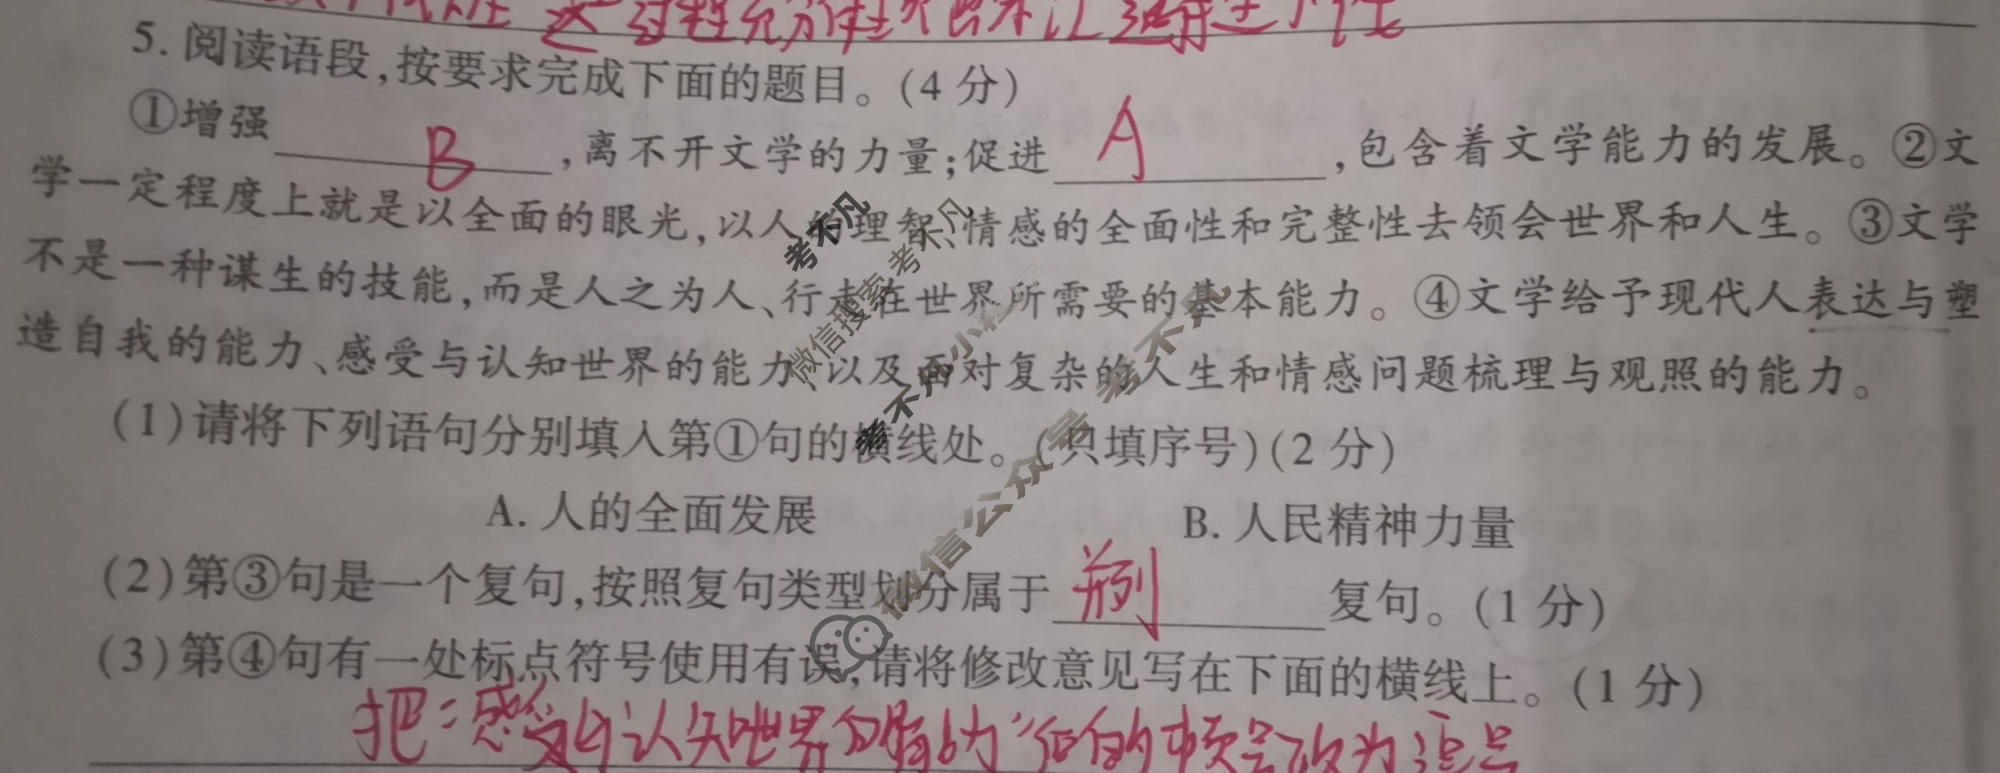 5. 阅读语段,按要求完成下面的题目。(4 分)
①增强 B ,离不开文学的力量;促进 A ,包含着文学能力的发展。②文
学一定程度上就是以全面的眼光,以人的理智、情感的全面性和完整性去领会世界和人生。③文学
不是一种谋生的技能,而是人之为人、行走在世界所需要的基本能力。④文学给予现代人表达与塑
造自我的能力、感受与认知世界的能力,以及面对复杂的人生和情感问题梳理与观照的能力。
(1)请将下列语句分别填入第①句的横线处。(只填序号)(2 分)
A. 人的全面发展 B. 人民精神力量
(2)第③句是一个复句,按照复句类型划分属于 并列 复句。(1 分)
(3)第④句有一处标点符号使用有误,请将修改意见写在下面的横线上。(1 分)
把"感受与认知世界的能力"后的顿号改为逗号
考不凡
微信搜索考不凡
考不凡小程序
微信公众号 考不凡